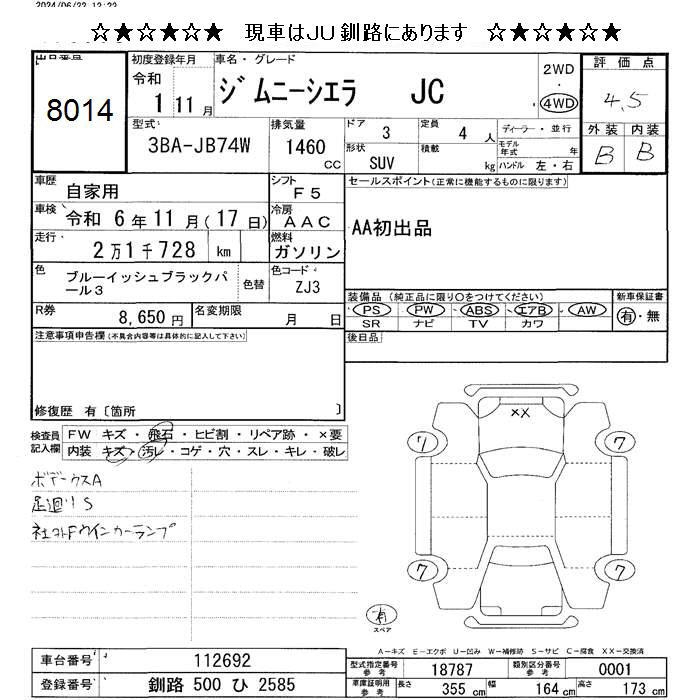 2024/06/22 12:22
☆★☆★☆★ 現車はJU釧路にあります ☆★☆★☆★
出品番号
8014
初度登録年月
令和
1 11月
車名・グレード
ジムニーシエラ JC
2WD
・
4WD
評価点
4.5
外装 内装
B B
型式
3BA-JB74W
排気量
1460
CC
ドア 3
定員 4 人
形状 SUV
積載 kg
ディーラー・並行
モデル年式 年
ハンドル 左・右
車歴 自家用
シフト F5
車検 令和 6年 11月(17日)
冷房 AAC
走行 2万1千728 km
燃料 ガソリン
色 ブルーイッシュブラックパール3
色替
色コード ZJ3
R券 8,650円
名変期限 月 日
セールスポイント(正常に機能するものに限ります)
AA初出品
装備品(純正品に限り○をつけてください)
PS PW ABS エアB AW
SR ナビ TV カワ
新車保証書
有・無
後日品
注意事項申告欄(不具合内容等は具体的に記入して下さい)
修復歴 有〔箇所 〕
検査員記入欄
FW キズ・飛石・ヒビ割・リペア跡・×要
内装 キズ・汚レ・コゲ・穴・スレ・キレ・破レ
足廻りS
社外Fウインカーランプ
××
7 7
7 7
有
スペア
A-キズ E-エクボ U-凹み W-補修跡 S-サビ C-腐食 XX-交換済
車台番号 112692
登録番号 釧路 500 ひ 2585
型式指定番号 参考 18787
類別区分番号 参考 0001
車庫証明用 参考 長さ 355 cm 幅 164 cm 高さ 173 cm